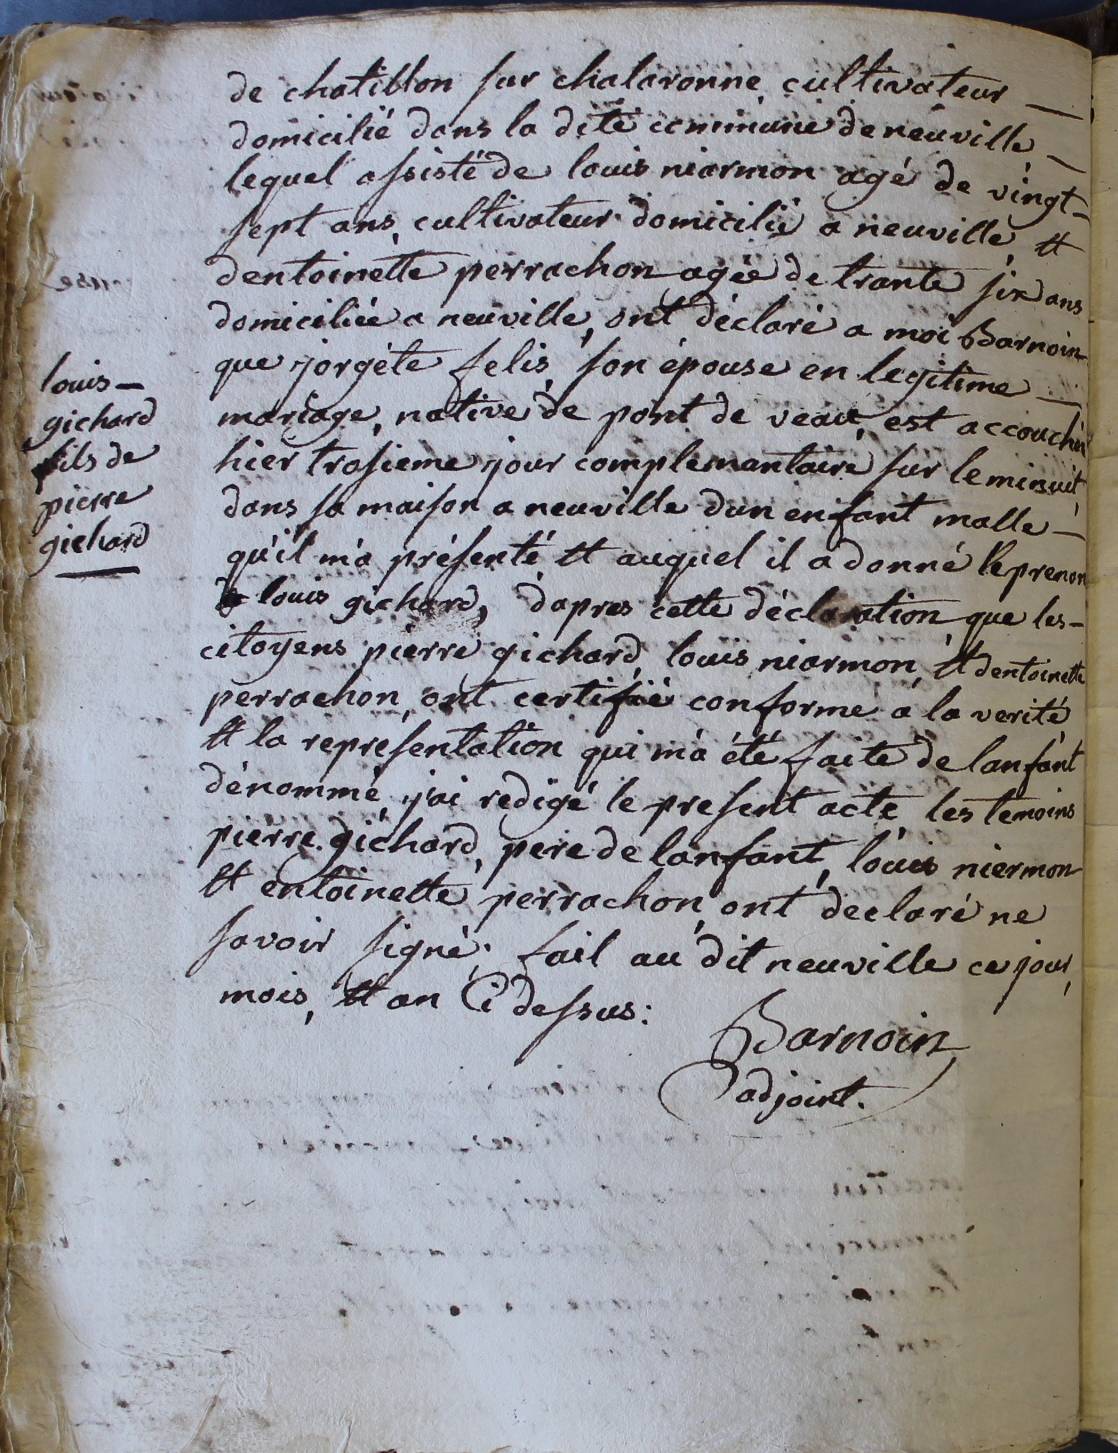 louis –
gichard
fils de
pierre
gichard
de chatillon sur chalaronne cultivateur –
domicilié dans la dite commune de neuville –
lequel assisté de louis niarmon agé de vingt-
sept ans, cultivateur domicilié a neuville, et
dentoinette perrachon agée de trante six ans
domiciliée a neuville, ont déclaré a moi Barnoin
que jorgéte felis, son épouse en legitime –
mariage, native de pont de veau, est accouchée
hier trosieme jour complemantaire sur le minuit
dans sa maison a neuville dun enfant malle –
qu'il m'a présenté et auquel il a donné le prenon
de louis gichard, dapres cette déclaration que les-
citoyens pierre gichard, louis niarmon, et dentoinette
perrachon, ont certifié conforme a la verité
et la representation qui m'a été faite de lanfant
dénommé, j'ai redigé le present acte les temoins
pierre gichard, pere de lanfant, louis niermon
et entoinette perrachon ont declaré ne
savoir signé; fait au dit neuville ce jour,
mois, et an Ci dessus:
Barnoin
adjoint.